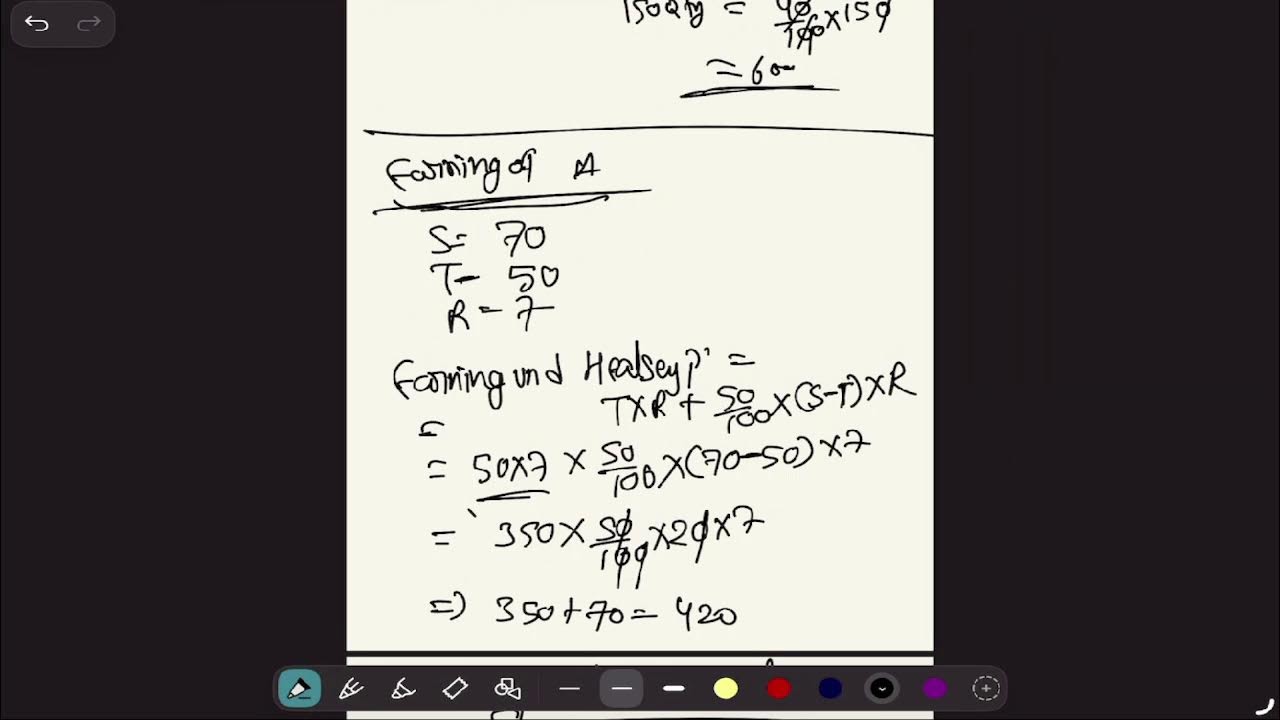 150 Qty = 40/100 × 150
= 60
Earning of A
S = 70
T = 50
R = 7
Earning und Healsey P' =
T × R + 50/100 × (S-T) × R
=
= 50×7 × 50/100 × (70-50) × 7
= 350 × 50/100 × 20 × 7
=> 350 + 70 = 420